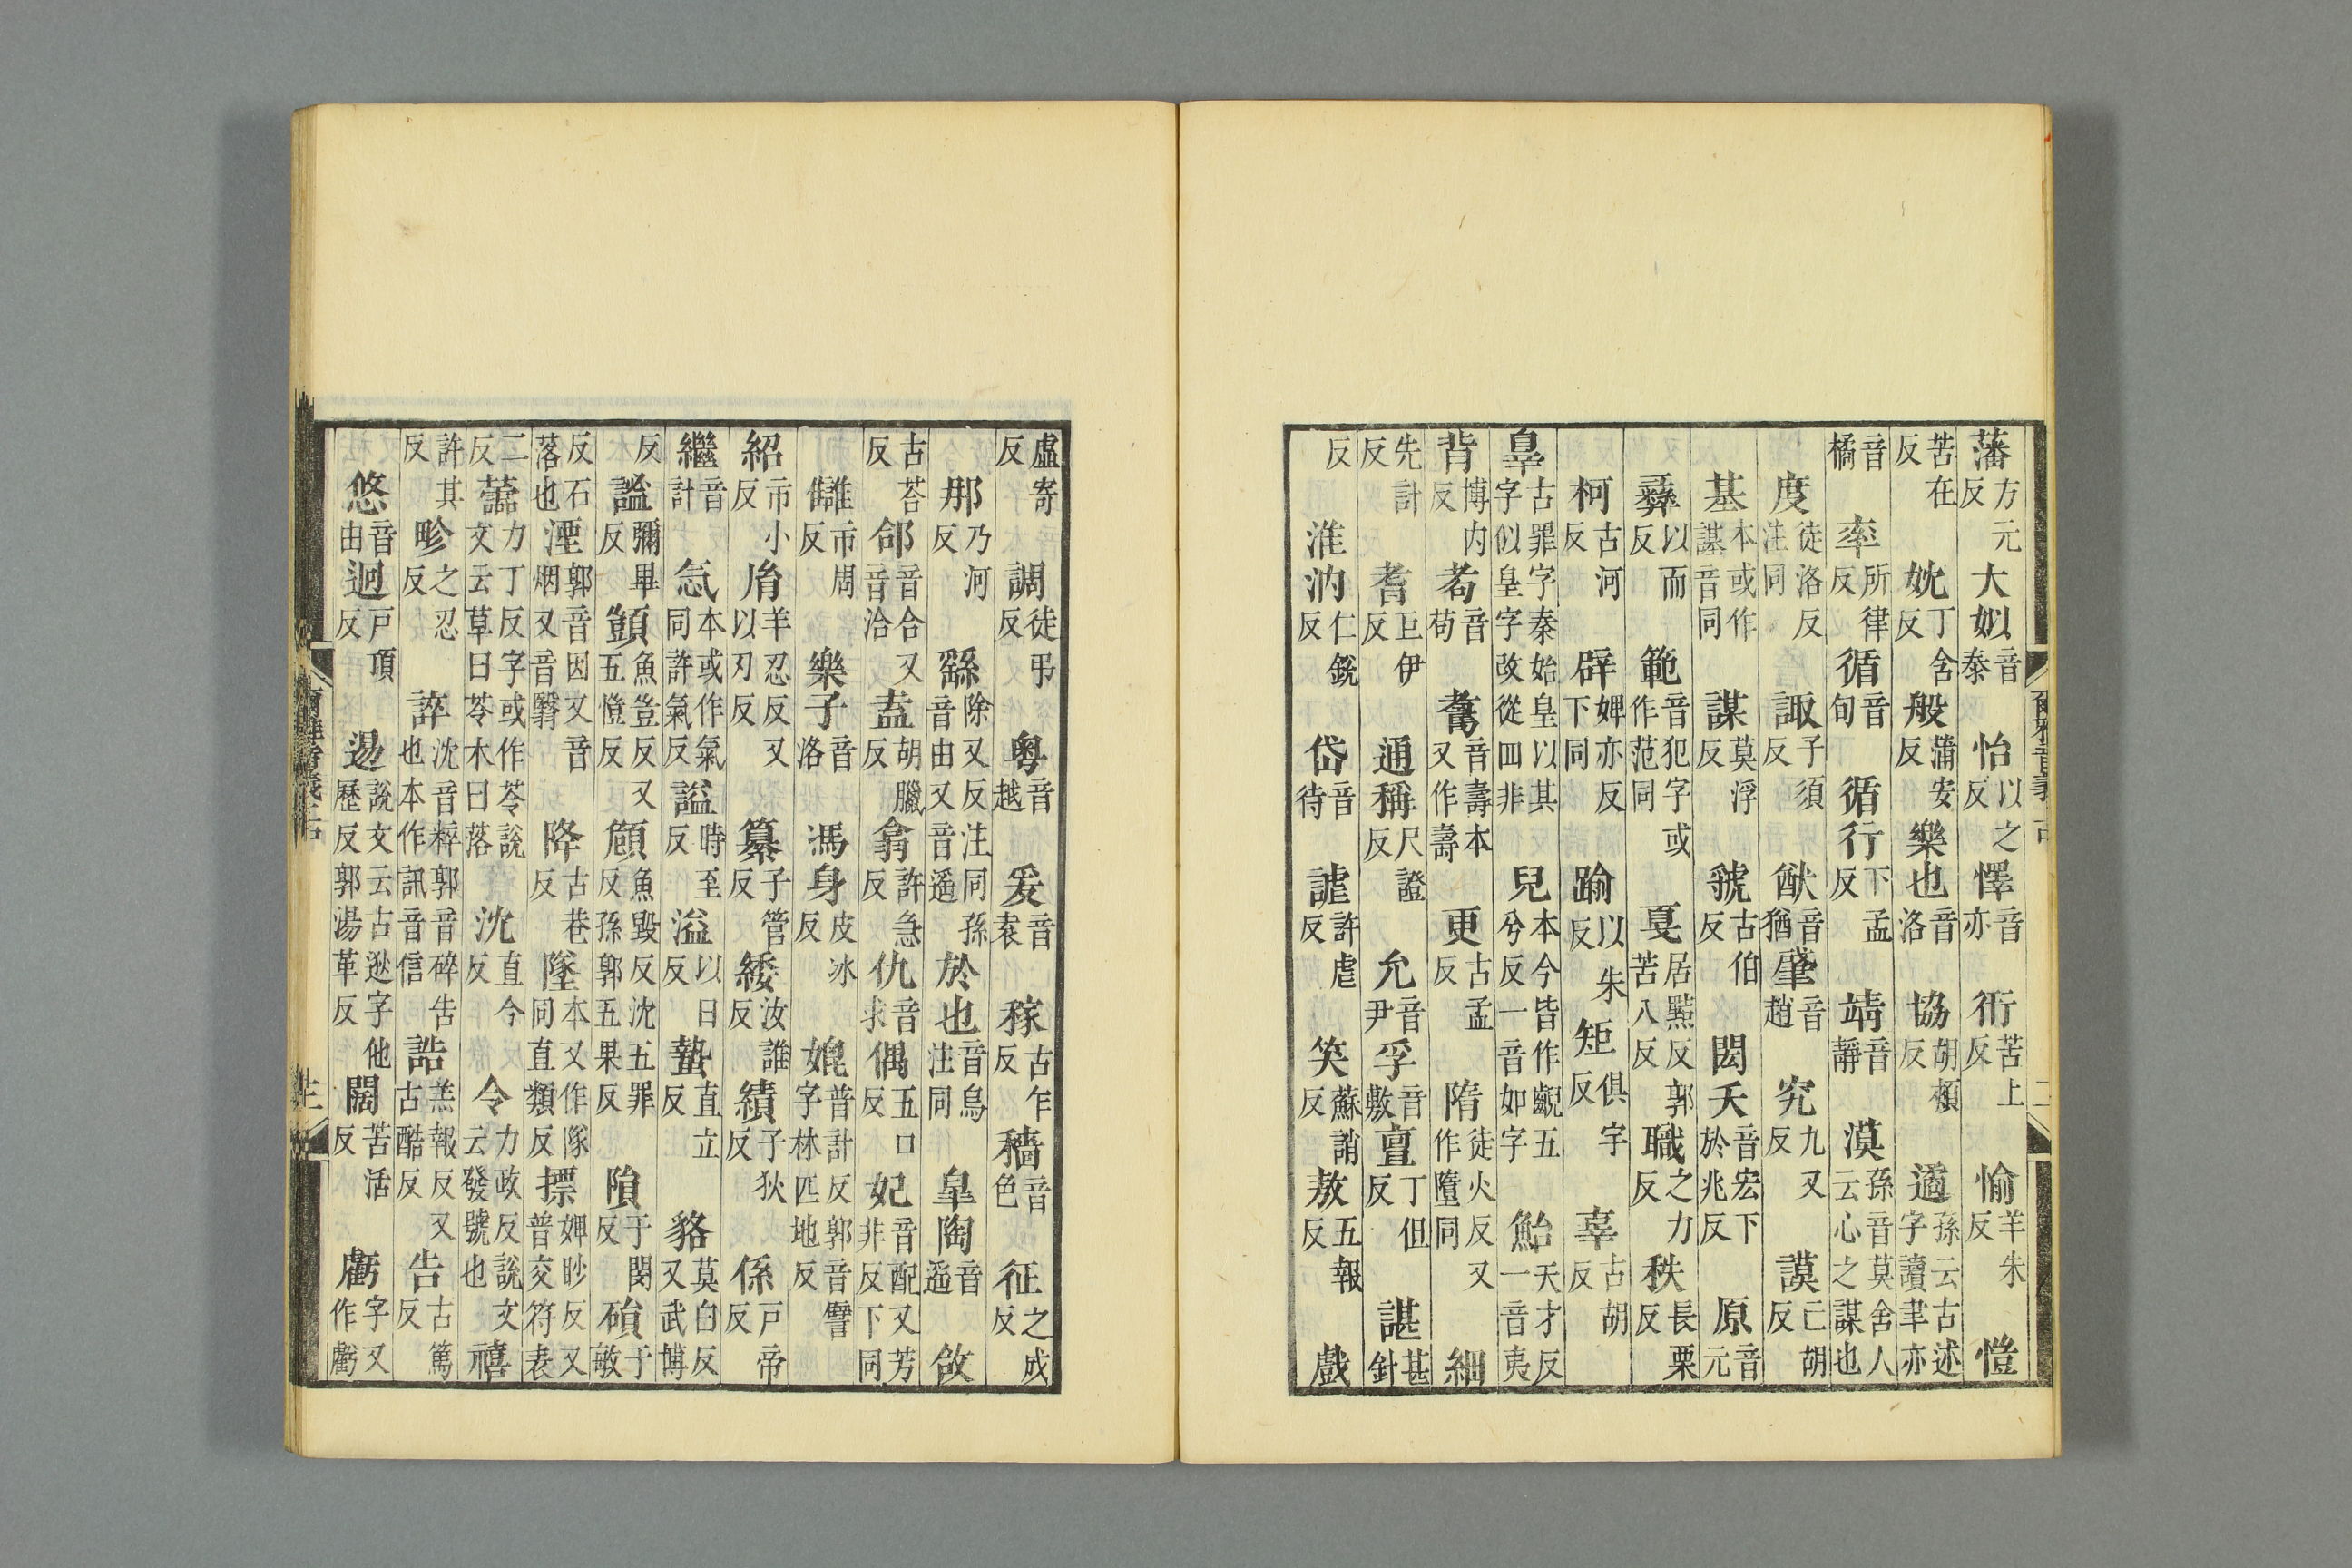 藩方元反大姒音泰怡以之反懌音亦衎苦上反愉羊朱反愷
苦在反妉丁含反般蒲安反樂也音洛協胡頰反遹孫云古述字讀聿亦
音橘率所律反循音旬循行下孟反靖音靜漠孫音莫舍人云心之謀也
度徒洛反注同諏子須反猷音猶肇音趙究九又反謨亡胡反
基本或作諆音同謀莫浮反虢古伯反閎夭音宏下於兆反原音元
彝以而反範音犯字或作范同戛居黠反郭苦八反職之力反秩長栗反
柯古河反辟婢亦反下同踰以朱反矩俱宇反辜古胡反
辠古罪字秦始皇以其字似皇字改從四非兒本今皆作齯五兮反一音如字鮐天才反一音夷
背博内反耇音苟耈音壽本又作壽更古孟反隋徒火反又作墮同細
先計反耆巨伊反通稱尺證反允音尹孚音敷亶丁但反諶甚針
反淮汭仁銳反岱音待謔許虐反笑蘇誚反敖五報反戲
爾雅音義上
二
虛寄反調徒弔反粵音越爰音袁稼古乍反穡音色征之成反
那乃河反繇除又反注同孫音由又音遥於也音烏注同皐陶音遥敆
古荅反郃音合又音洽盍胡臘反翕許急反仇音求偶五口反妃音配又芳非反下同
讎市周反樂子音洛馮身皮冰反媲普計反郭音譬字林匹地反
紹市小反胤羊忍反又以刃反纂子管反緌汝誰反績子狄反係戶帝反
繼音計忥本或作氣同許氣反謚時至反溢以日反蟄直立反貉莫白反又武博
反謐彌畢反顗魚豈反又五愷反頠魚毀反沈五罪反孫郭五果反隕于閔反磒于敏
反石落也湮郭音因又音烟又音翳降古巷反墜本又作隊同直類反摽婢眇反又普交符表
二反蘦力丁反字或作苓說文云草曰苓木曰落沈直今反令力政反說文云發號也禧
許其反畛之忍反誶沈音粹郭音碎告也本作訊音信誥羔報反又古酷反告古篤反
悠音由迥戸頂反逷說文云古逖字他歷反郭湯革反闊苦活反虧字又作虧